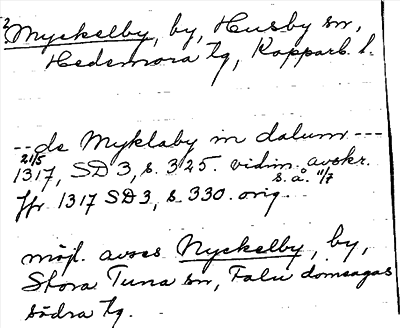 2 Myckelby, by, Husby sn,
Hedemora tg, Kopparb. l.
--- de Myklaby in dalum ---
21/5 1317, SD 3, s. 325. vidim. avskr.
s. å. 11/7
Jfr 1317 SD 3, s. 330. orig.
möjl. avses Nyckelby, by,
Stora Tuna sn, Falu domsagas
södra tg.